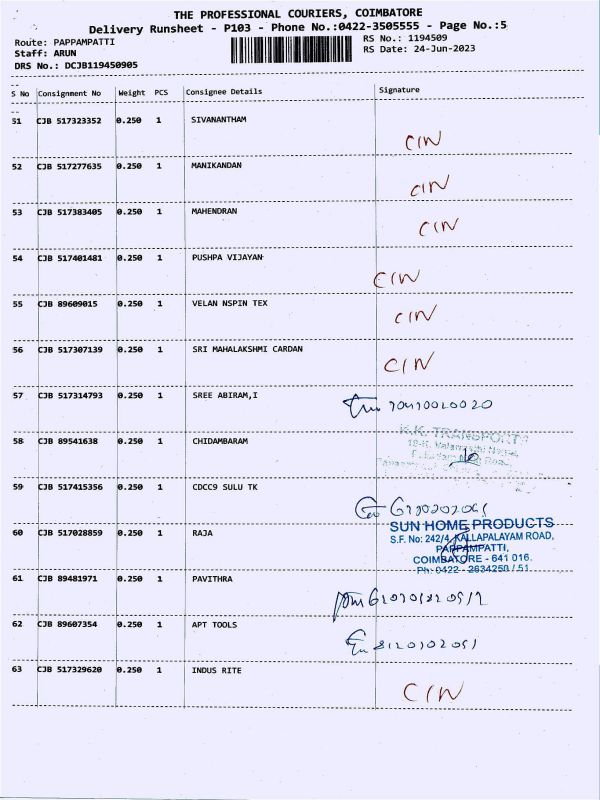 THE PROFESSIONAL COURIERS, COIMBATORE
Delivery Runsheet - P103 - Phone No.:0422-3505555 - Page No.:5
Route: PAPPAMPATTI RS No.: 1194509
Staff: ARUN RS Date: 24-Jun-2023
DRS No.: DCJB119450905
S No Consignment No Weight PCS Consignee Details Signature
51 CJB 517323352 0.250 1 SIVANANTHAM
C/N
52 CJB 517277635 0.250 1 MANIKANDAN
C/N
53 CJB 517383405 0.250 1 MAHENDRAN
C/N
54 CJB 517401481 0.250 1 PUSHPA VIJAYAN
C/N
55 CJB 89609015 0.250 1 VELAN NSPIN TEX
C/N
56 CJB 517307139 0.250 1 SRI MAHALAKSHMI CARDAN
C/N
57 CJB 517314793 0.250 1 SREE ABIRAM,I
58 CJB 89541638 0.250 1 CHIDAMBARAM
K.K. TRANSPORT
59 CJB 517415356 0.250 1 CDCC9 SULU TK
SUN HOME PRODUCTS
60 CJB 517028859 0.250 1 RAJA
S.F. No: 242/4, KALLAPALAYAM ROAD,
PAPPAMPATTI,
COIMBATORE - 641 016.
Ph: 0422 - 2634250 / 51.
61 CJB 89481971 0.250 1 PAVITHRA
62 CJB 89607354 0.250 1 APT TOOLS
63 CJB 517329620 0.250 1 INDUS RITE
C/N